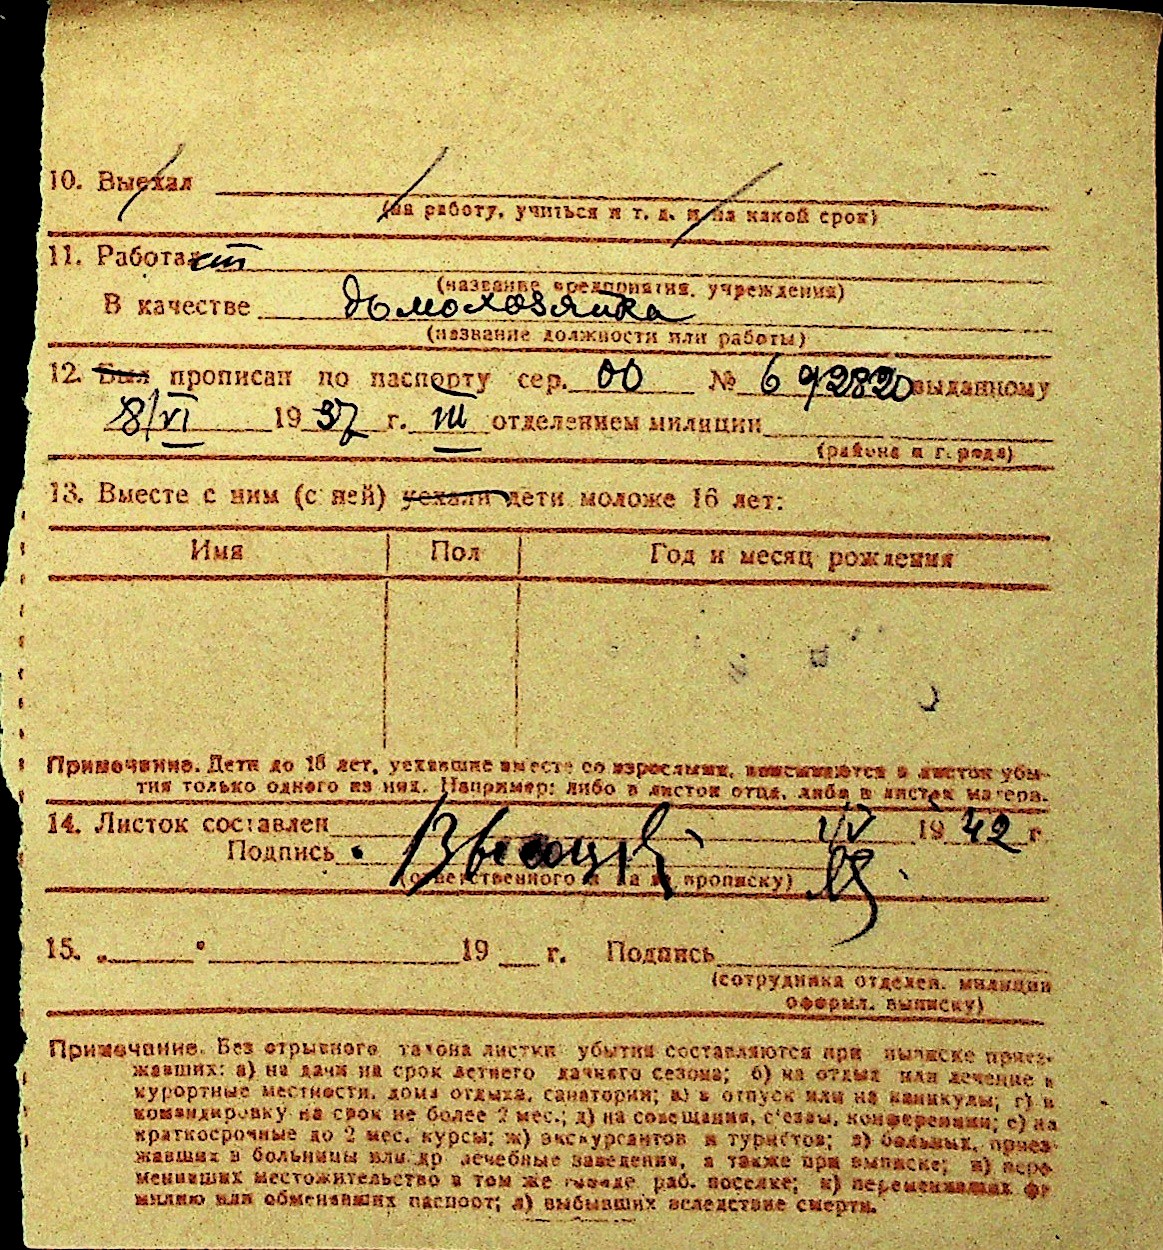 10. Выехал
(на работу, учиться и т. д. и на какой срок)
11. Работает
(название предприятия, учреждения)
В качестве домохозяйка
(название должности или работы)
12. Был прописан по паспорту сер. 00 № 692820 выданному
8/VI 1937 г. III отделением милиции
(района и города)
13. Вместе с ним (с ней) уехали дети моложе 16 лет:
Имя Пол Год и месяц рождения
Примечание. Дети до 16 лет, уехавшие вместе со взрослыми, вписываются в листок убы-
тия только одного из них. Например: либо в листок отца, либо в листок матери.
14. Листок составлен 1/V 1942 г
Подпись
(ответственного за прописку)
15. „ " 19 г. Подпись
(сотрудника отделен. милиции
оформл. выписку)
Примечание. Без отрывного талона листки убытия составляются при выписке приез-
жавших: а) на дачи на срок летнего дачного сезона; б) на отдых или лечение в
курортные местности, дома отдыха, санатории; в) в отпуск или на каникулы; г) в
командировку на срок не более 2 мес.; д) на совещания, с'езды, конференции; е) на
краткосрочные до 2 мес. курсы; ж) экскурсантов и туристов; з) больных, приез-
жавших в больницы или др лечебные заведения, а также при выписке; и) пере-
менивших местожительство в том же городе раб. поселке; к) переменивших фа-
милию или обменявших паспорт; л) выбывших вследствие смерти.